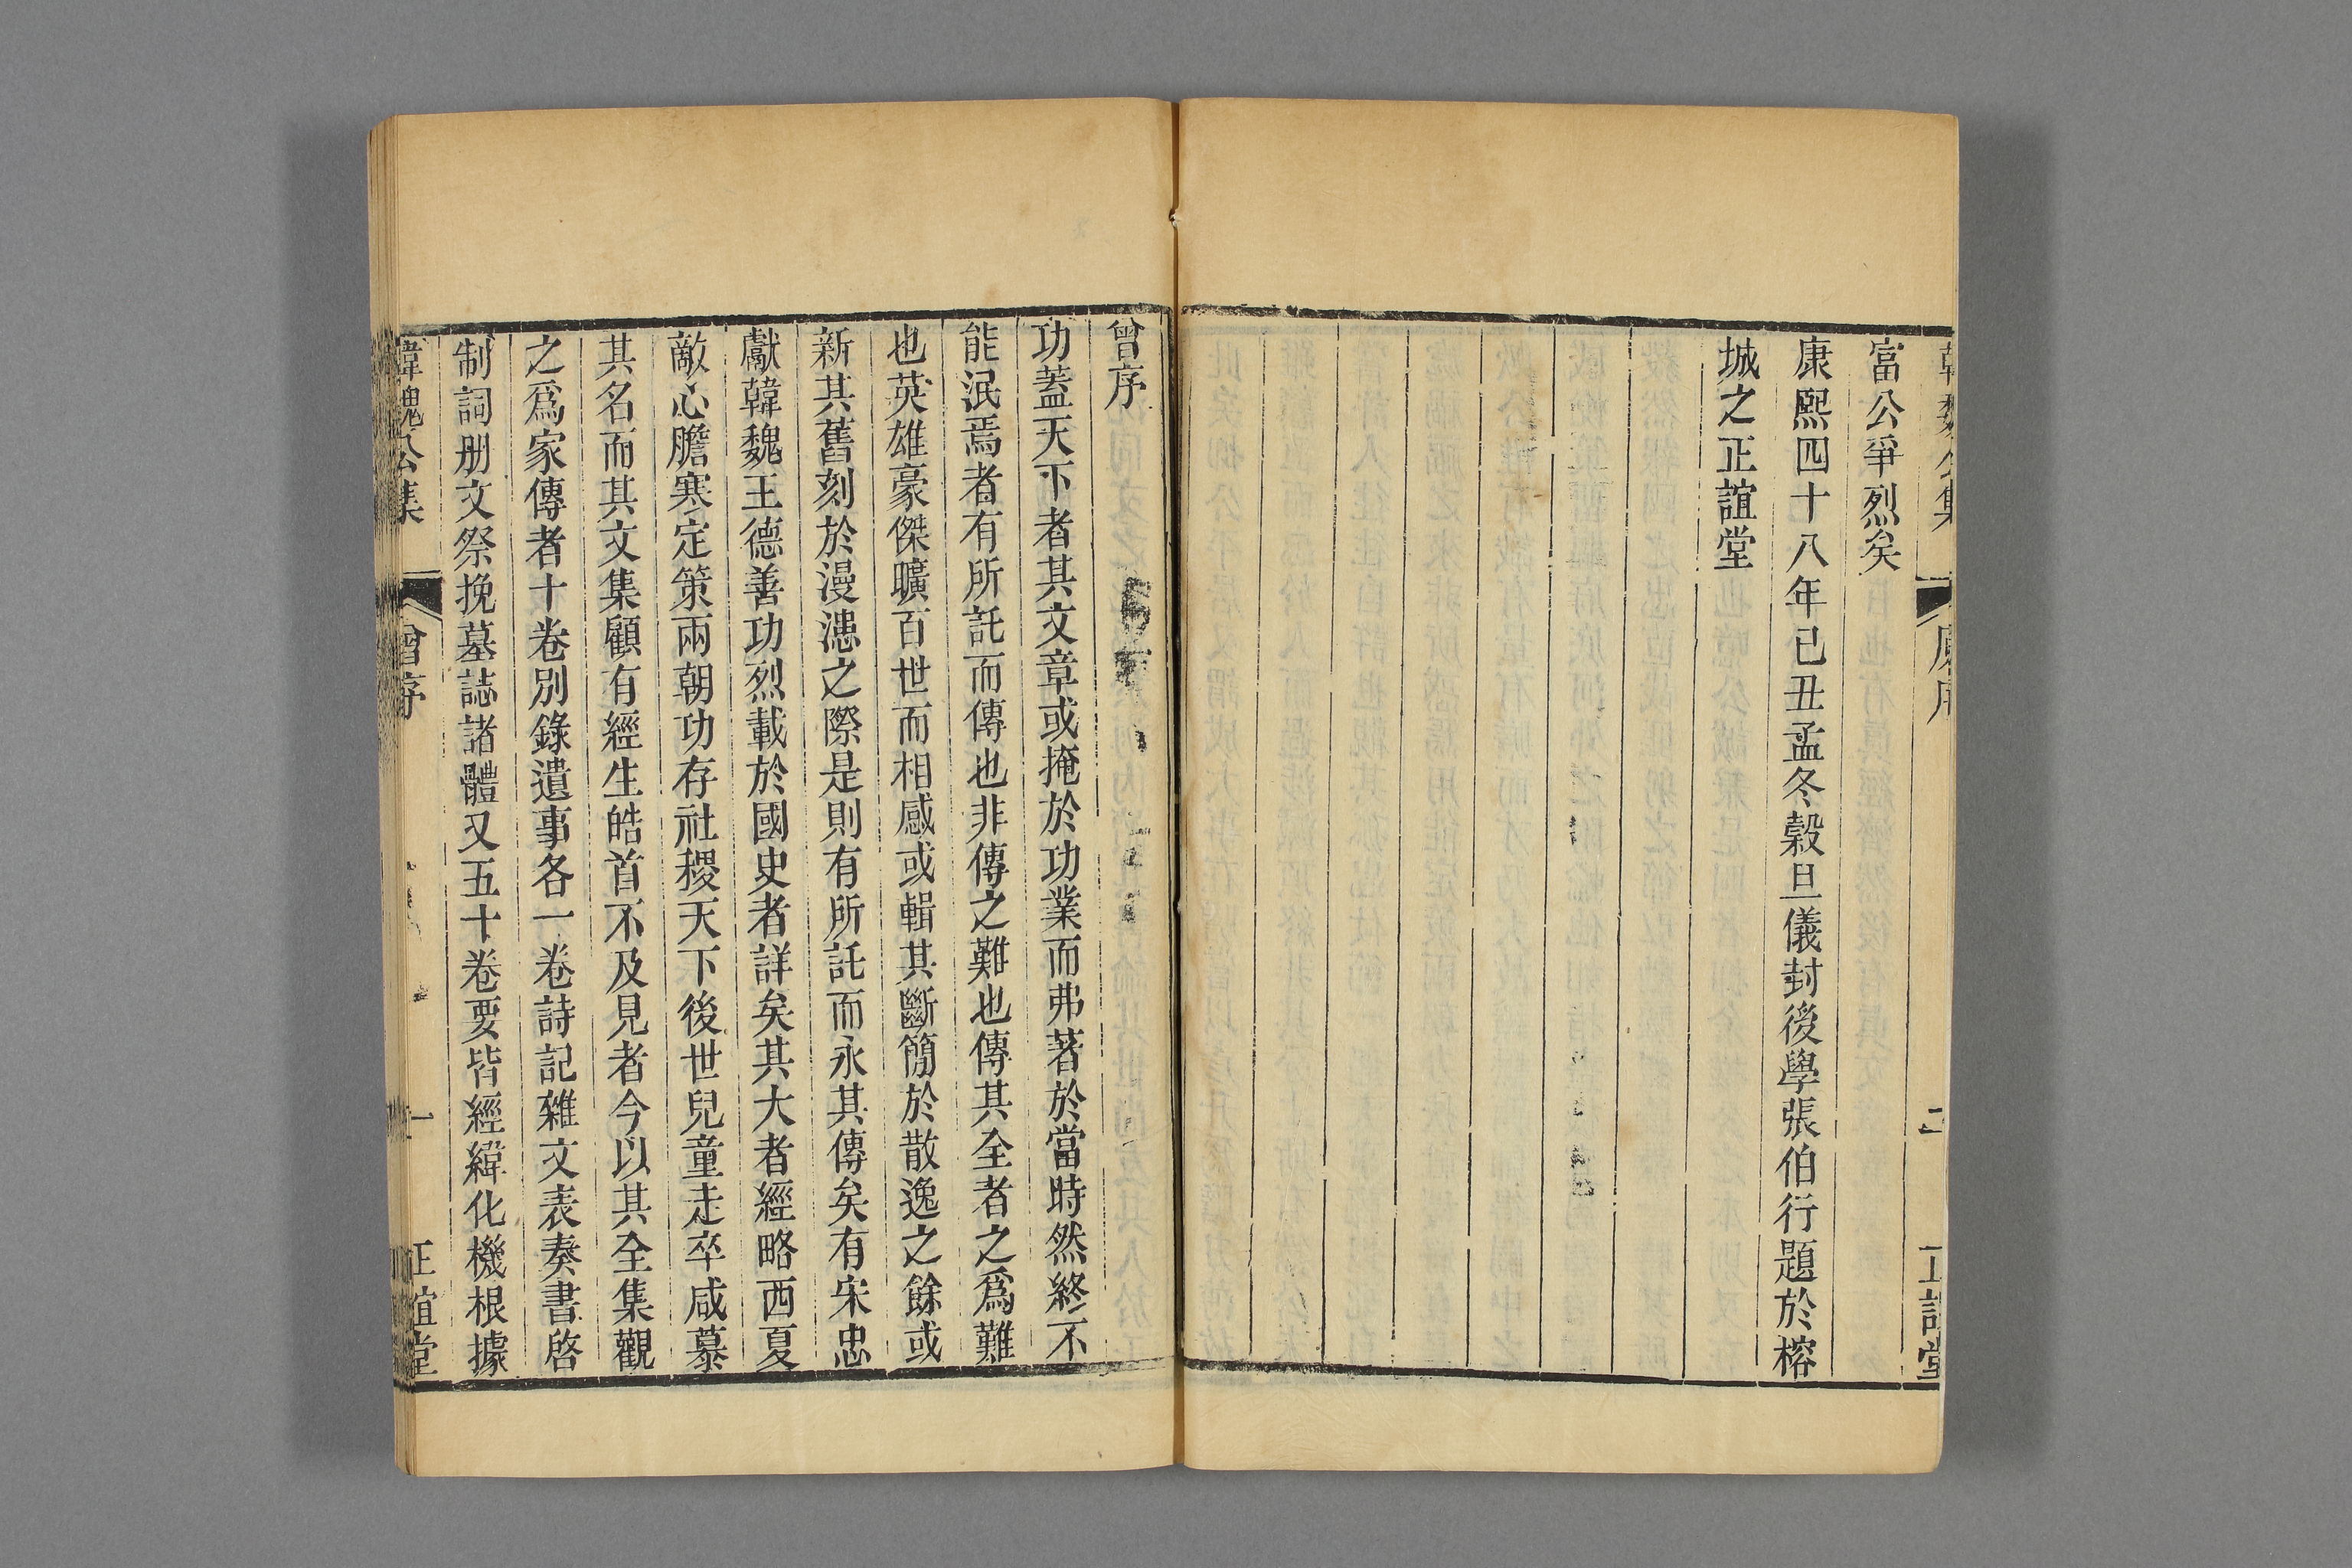 韓魏公集
序
二
正誼堂
富公爭烈矣
康熙四十八年已丑孟冬穀旦儀封後學張伯行題於榕
城之正誼堂
曾序
功蓋天下者其文章或掩於功業而弗著於當時然終不
能泯焉者有所託而傳也非傳之難也傳其全者之爲難
也英雄豪傑曠百世而相感或輯其斷簡於散逸之餘或
新其舊刻於漫漶之際是則有所託而永其傳矣有宋忠
獻韓魏王德善功烈載於國史者詳矣其大者經略西夏
敵心膽寒定策兩朝功存社稷天下後世兒童走卒咸慕
其名而其文集顧有經生皓首不及見者今以其全集觀
之爲家傳者十卷別錄遺事各一卷詩記雜文表奏書啓
制詞册文祭挽墓誌諸體又五十卷要皆經緯化機根據
韓魏公集
曾序
一
正誼堂